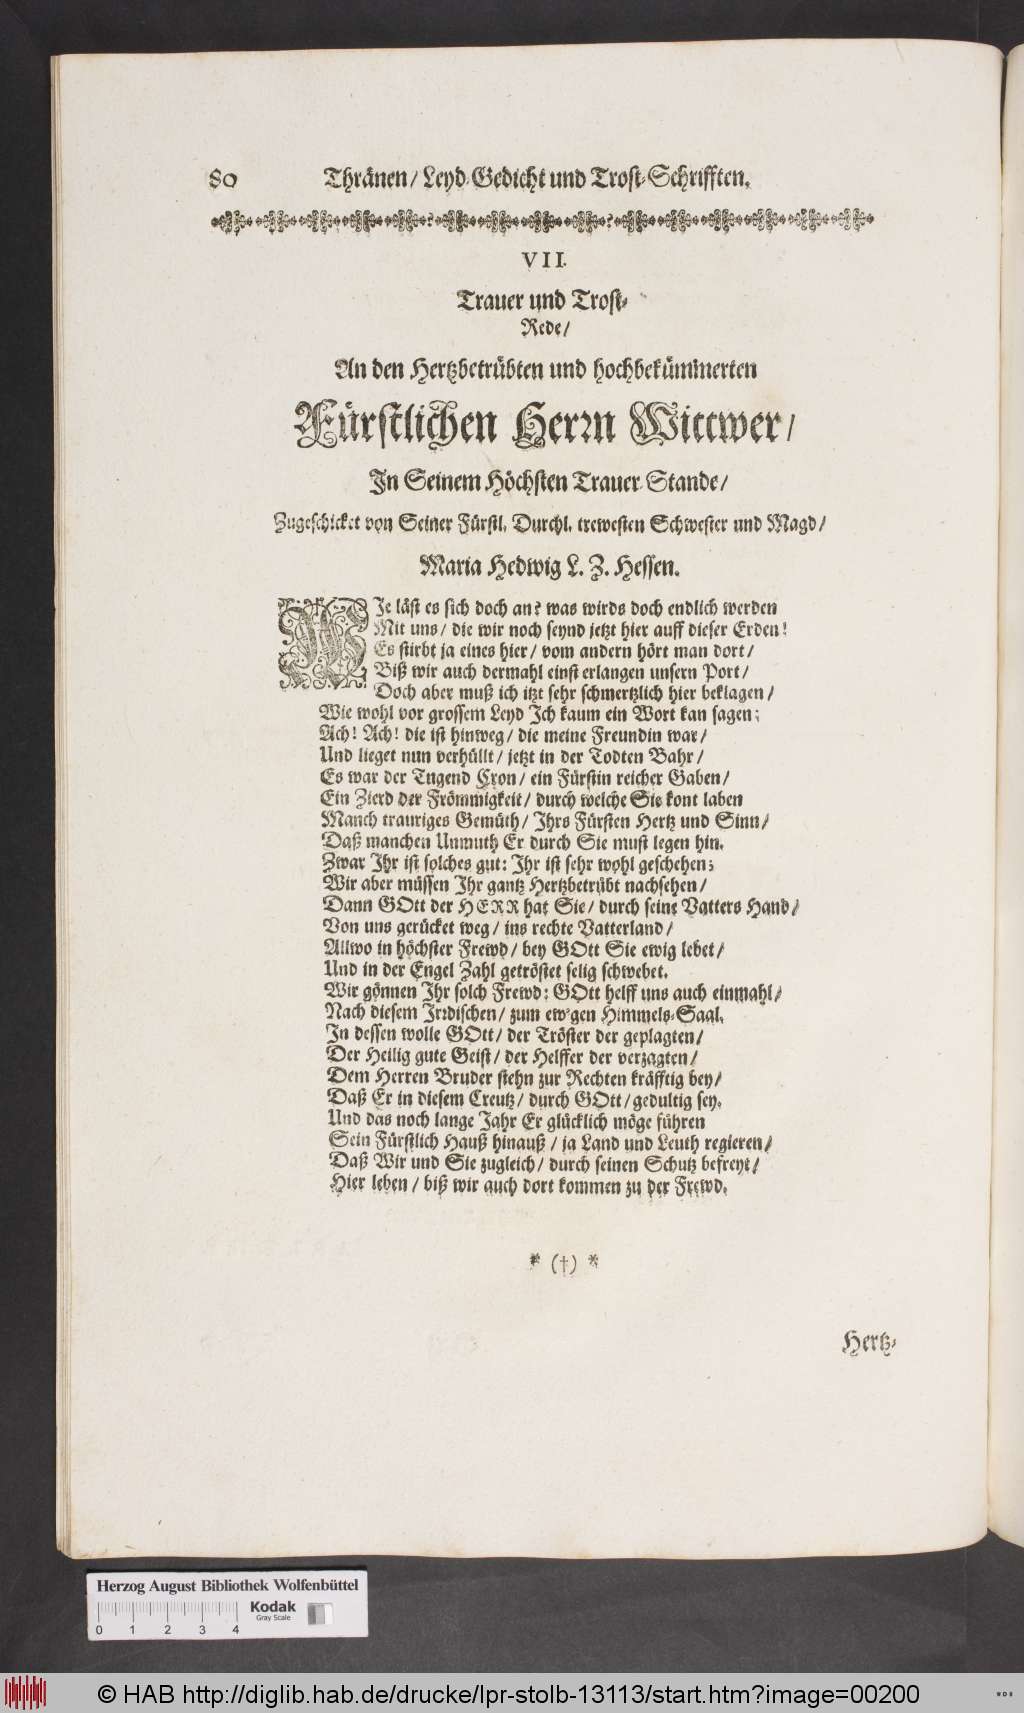 80 Thränen/ Leyd-Gedicht und Trost-Schrifften.
VII.
Trauer und Trost-
Rede/
An den Hertzbetrübten und hochbekümmerten
Fürstlichen Herrn Wittwer/
In Seinem Höchsten Trauer-Stande/
Zugeschicket von Seiner Fürstl. Durchl. trewesten Schwester und Magd/
Maria Hedwig L. Z. Hessen.
WIe läst es sich doch an? was wirds doch endlich werden
Mit uns/ die wir noch seynd jetzt hier auff dieser Erden!
Es stirbt ja eines hier/ vom andern hört man dort/
Biß wir auch dermahl einst erlangen unsern Port/
Doch aber muß ich itzt sehr schmertzlich hier beklagen/
Wie wohl vor grossem Leyd Ich kaum ein Wort kan sagen;
Ach! Ach! die ist hinweg/ die meine Freundin war/
Und lieget nun verhüllt/ jetzt in der Todten Bahr/
Es war der Tugend Cron/ ein Fürstin reicher Gaben/
Ein Zierd der Frömmigkeit/ durch welche Sie kont laben
Manch trauriges Gemüth/ Ihrs Fürsten Hertz und Sinn/
Daß manchen Unmuth Er durch Sie must legen hin.
Zwar Ihr ist solches gut: Ihr ist sehr wohl geschehen;
Wir aber müssen Ihr gantz Hertzbetrübt nachsehen/
Dann GOtt der HERR hat Sie/ durch seine Vatters Hand/
Von uns gerücket weg/ ins rechte Vatterland/
Allwo in höchster Frewd/ bey GOtt Sie ewig lebet/
Und in der Engel Zahl getröstet selig schwebet.
Wir gönnen Ihr solch Frewd: GOtt helff uns auch einmahl/
Nach diesem Irrdischen/ zum ew'gen Himmels-Saal.
In dessen wolle GOtt/ der Tröster der geplagten/
Der Heilig gute Geist/ der Helffer der verzagten/
Dem Herren Bruder stehn zur Rechten kräfftig bey/
Daß Er in diesem Creutz/ durch GOtt/ gedultig sey.
Und das noch lange Jahr Er glücklich möge führen
Sein Fürstlich Hauß hinauß/ ja Land und Leuth regieren/
Daß Wir und Sie zugleich/ durch seinen Schutz befreyt/
Hier leben/ biß wir auch dort kommen zu der Frewd.
* (†) *
Hertz-
Herzog August Bibliothek Wolfenbüttel
Kodak
Gray Scale
0 1 2 3 4
© HAB http://diglib.hab.de/drucke/lpr-stolb-13113/start.htm?image=00200